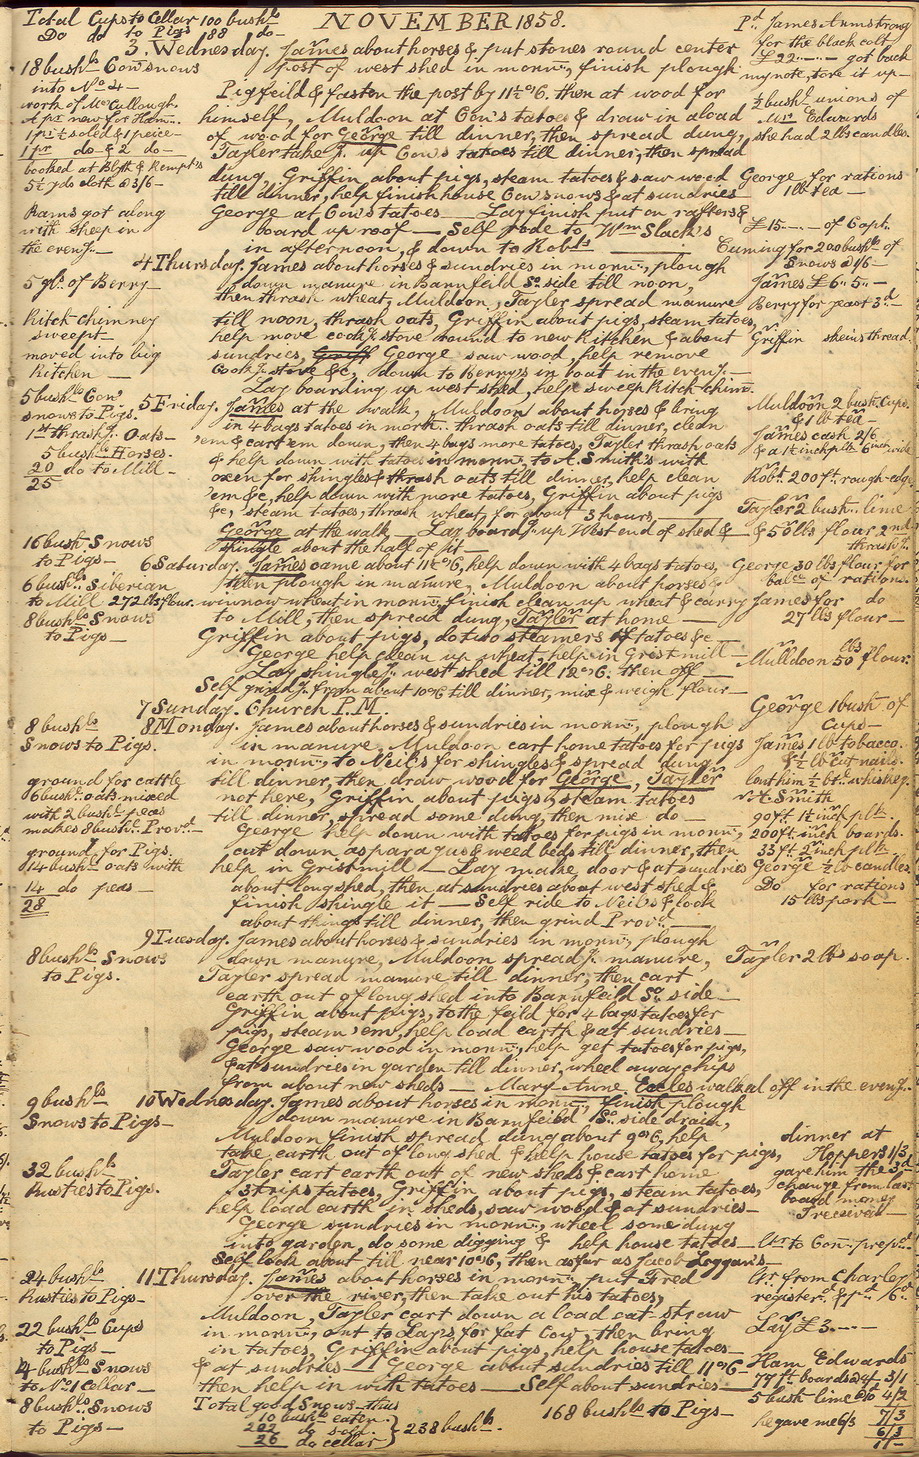 Total Cups to Cellar 100 bushls
Do do to Pigs 88 do-
NOVEMBER 1858.
3. Wednesday. James about horses & put stones round center
post of west shed in mornn., finish plough
Pigfeild & fasten the post by 11½ o'C, then at wood for
himself, Muldoon at Con's tatoes & draw in a load
of wood for George till dinner, then spread dung,
Tayler take J. up Con's tatoes till dinner, then spread
dung, Griffin about pigs, steam tatoes & saw wood
till dinner, help finish house Con's nows & at sundries
George at Con's tatoes — Lay finish put on rafters &
board up roof — Self rode to Wm Slack's
in afternoon, & down to Robts —
18 bushls Con's snows
into No 4 —
worth of McCullough.
1 pr new for Ham..
1 pr ½ soled & 1 peice —
1 pr do & 2 do —
booked at Blyth & Kempt's
5½ yds cloth @ 3/6 —
Rams got along
with sheep in
the eveng. —
Pd James Armstrong
for the black colt
£22 - - - got back
my note, tore it up —
½ bushl onions of
Mr Edwards
she had 2 lbs candles.
George for rations
1 lb tea —
£15 - - - of Capt.
Cuming for 200 bushls of
Snows @ 1/6 —
4 Thursday. James about horses & sundries in mornn., plough
down manure in Barnfeild So. side till noon,
then thrash wheat, Muldoon, Tayler spread manure
till noon, thrash oats, Griffin about pigs, steam tatoes,
help move cookg. stove round to new Kitchen & about
sundries, Griff George saw wood, help remove
Cookg. stove &c, down to Berry's in boat in the eveng. —
Lay boarding up west shed, help sweep Kitch chim.
5 gls. of Berry —
Kitch chimney
swept —
moved into big
Kitchen —
James £6 - 5 - —
Berry for year past 3d —
Griffin skein thread
5 Friday. James at the walk, Muldoon about horses & bring
in 4 bags tatoes in morn.. thrash oats till dinner, clean
'em & cart em down, then 4 bags more tatoes, Tayler thrash oats
& help down with tatoes in mornn., to A. Smith's with
oxen for shingles & thrash oats till dinner, help clean
'em &c, help down with more tatoes, Griffin about pigs
&c, steam tatoes, thrash wheat, for about 3 hours,
George at the walk — Lay boardg. up West end of shed &
shingle about the half of it —
5 bushls Con.
snows to Pigs.
1st thrashg. Oats —
5 bushls Horses.
20 do to Mill —
25
Muldoon 2 bush. Cups.
& 1 lb tea —
James cash 2/6
& a 1½ inch plk 6 inch wide
Robt. 200 ft. rough edge
Tayler 2 bush.. lime
& 50 lbs flour 2nd
thrashg.
6 Saturday. James came about 11½ o'C, help down with 4 bags tatoes,
then plough in manure, Muldoon about horses &
winnow wheat in mornn., finish clean up wheat & carry
to Mill, then spread dung, Tayler at home —
Griffin about pigs, do two steamers of tatoes &c —
George help clean up wheat, help in Gristmill —
Lay shingleg. west shed till 12 o'C. then off —
Self grindg. from about 10 o'C till dinner, mix & weigh flour —
16 bush. Snows
to Pigs —
6 bushls. Siberian
to Mill 272 lbs flour.
8 bushls Snows
to Pigs —
George 30 lbs flour for
balce of rations.
James for do
27 lbs flour —
Mulldoon 50 lbs flour.
7 Sunday. Church P.M.
8 Monday. James about horses & sundries in mornn., plough
in manure, Muldoon cart home tatoes for pigs
in mornn., to Neil's for shingles & spread dung
till dinner, then draw wood for George, Tayler
not here, Griffin about pigs, steam tatoes
till dinner, spread some dung, then mix do —
George help down with tatoes for pigs in mornn.,
cut down asparagus & weed beds till dinner, then
help in Gristmill — Lay make door & at sundries
about long shed, then at sundries about west shed &
finish shingle it — Self ride to Neil's & look
about things till dinner, then grind Provd. —
8 bushls
Snows to Pigs.
ground for cattle
6 bushl. oats mixed
with 2 bushl. peas
makes 8 bushls. Provd. —
ground for Pigs.
14 bushl. oats with
14 do peas —
28
George 1 bush of
Cups —
James 1 lb tobacco.
& ½ lb cut nails.
lent him ½ btl. whiskey.
A. Smith
90 ft. 1½ inch plk.
200 ft. inch boards.
33 ft 2 inch plk —
George ½ lb candles
Do for rations
15 lbs pork —
9 Tuesday. James about horses & sundries in mornn., plough
down manure, Muldoon spreadg. manure,
Tayler spread manure till dinner, then cart
earth out of long shed into Barnfeild So. side —
Griffin about pigs, to the feild for 4 bags tatoes for
pigs, steam 'em, help load earth & at sundries —
George saw wood in mornn., help get tatoes for pigs,
& at sundries in garden till dinner, wheel away chips
from about new sheds — Mary Anne Eccles walked off in the eveng.
8 bushls Snows
to Pigs.
Tayler 2 lbs soap.
10 Wednesday. James about horses in mornn., finish plough
down manure in Barnfeild So. side drain,
Muldoon finish spread dung about 9 o'C, help
take earth out of long shed & help house tatoes for pigs,
Tayler cart earth out of new sheds & cart home
3 trips tatoes, Griffin about pigs, steam tatoes,
help load earth in sheds, saw wood & at sundries —
George sundries in mornn., wheel some dung
into garden, do some digging & help house tatoes —
Self look about till near 10 o'C, then as far as Jacob Loggan's —
9 bushls
Snows to Pigs —
32 bushls
Rusties to Pigs.
dinner at
Hoppers 1/3
gave him the 3d
change from last
board money
I received —
Ltr to Con. prepd.
11 Thursday. James about horses in mornn., put Fred
over the river, then take out his tatoes,
Muldoon, Tayler cart down a load oat-straw
in mornn., out to Lay's for fat Cow, then bring
in tatoes, Griffin about pigs, help house tatoes —
& at sundries — George about sundries till 11 o'C —
then help in with tatoes — Self about sundries —
24 bushls
Rusties to Pigs —
22 bushls Cups
to Pigs —
4 bushls Snows
to No 1 Cellar —
8 bushls. Snows
to Pigs —
Ltr from Charley
registerd & pd 6d
Lay £3 - - -
Ham Edwards
77 ft. boards @ 4/ 3/1
5 bush lime @ 10 4/2
7/3
he gave me 6/3 6/3
1/-
Total good Snows thus
10 bushls eaten.
202 do sold.
26 do cellar
} 238 bushls.
168 bushls to Pigs —